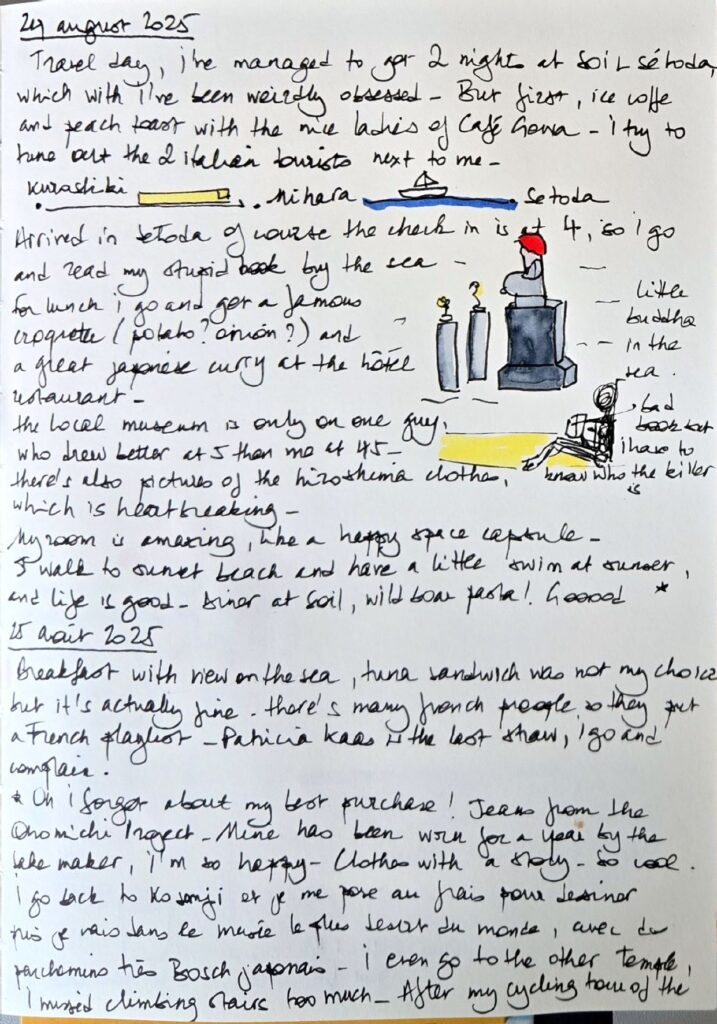 24 august 2025
Travel day, i've managed to get 2 nights at SOIL Sétoda,
which with I've been weirdly obsessed - But first, ice coffe
and peach toast with the nice ladies of Café Gewa - i try to
tune out the 2 italian tourists next to me -
Kurashiki Mihara Setoda
Arrived in Setoda of course the check in is at 4, so i go
and read my stupid book by the sea -
for lunch i go and get a famous
croquette (potato? onion?) and
a great japanese curry at the hôtel
restaurant -
little
buddha
in the
sea.
the local museum is only on one guy,
who drew better at 5 than me at 45 -
there's also pictures of the hiroshima clothes,
which is heartbreaking -
bad
book but
i have to
know who the killer
is
My room is amazing, like a happy space capsule -
I walk to sunset beach and have a little swim at sunset,
and life is good - Diner at Soil, wild boar pasta! Gooood *
25 août 2025
Breakfast with view on the sea, tuna sandwich was not my choice
but it's actually fine - there's many french people so they put
a French playlist - Patricia Kaas is the last straw, i go and
complain.
* Oh i forgot about my best purchase! Jeans from the
Onomichi Project - Mine has been worn for a year by the
sake maker, I'm so happy - Clothes with a story - so cool.
I go back to Kosanji et je me pose au frais pour dessiner
puis je vais dans le musée le plus désert du monde, avec du
parchemins très Bosch japonais - i even go to the other temple,
I missed climbing stairs too much - After my cycling tour of the